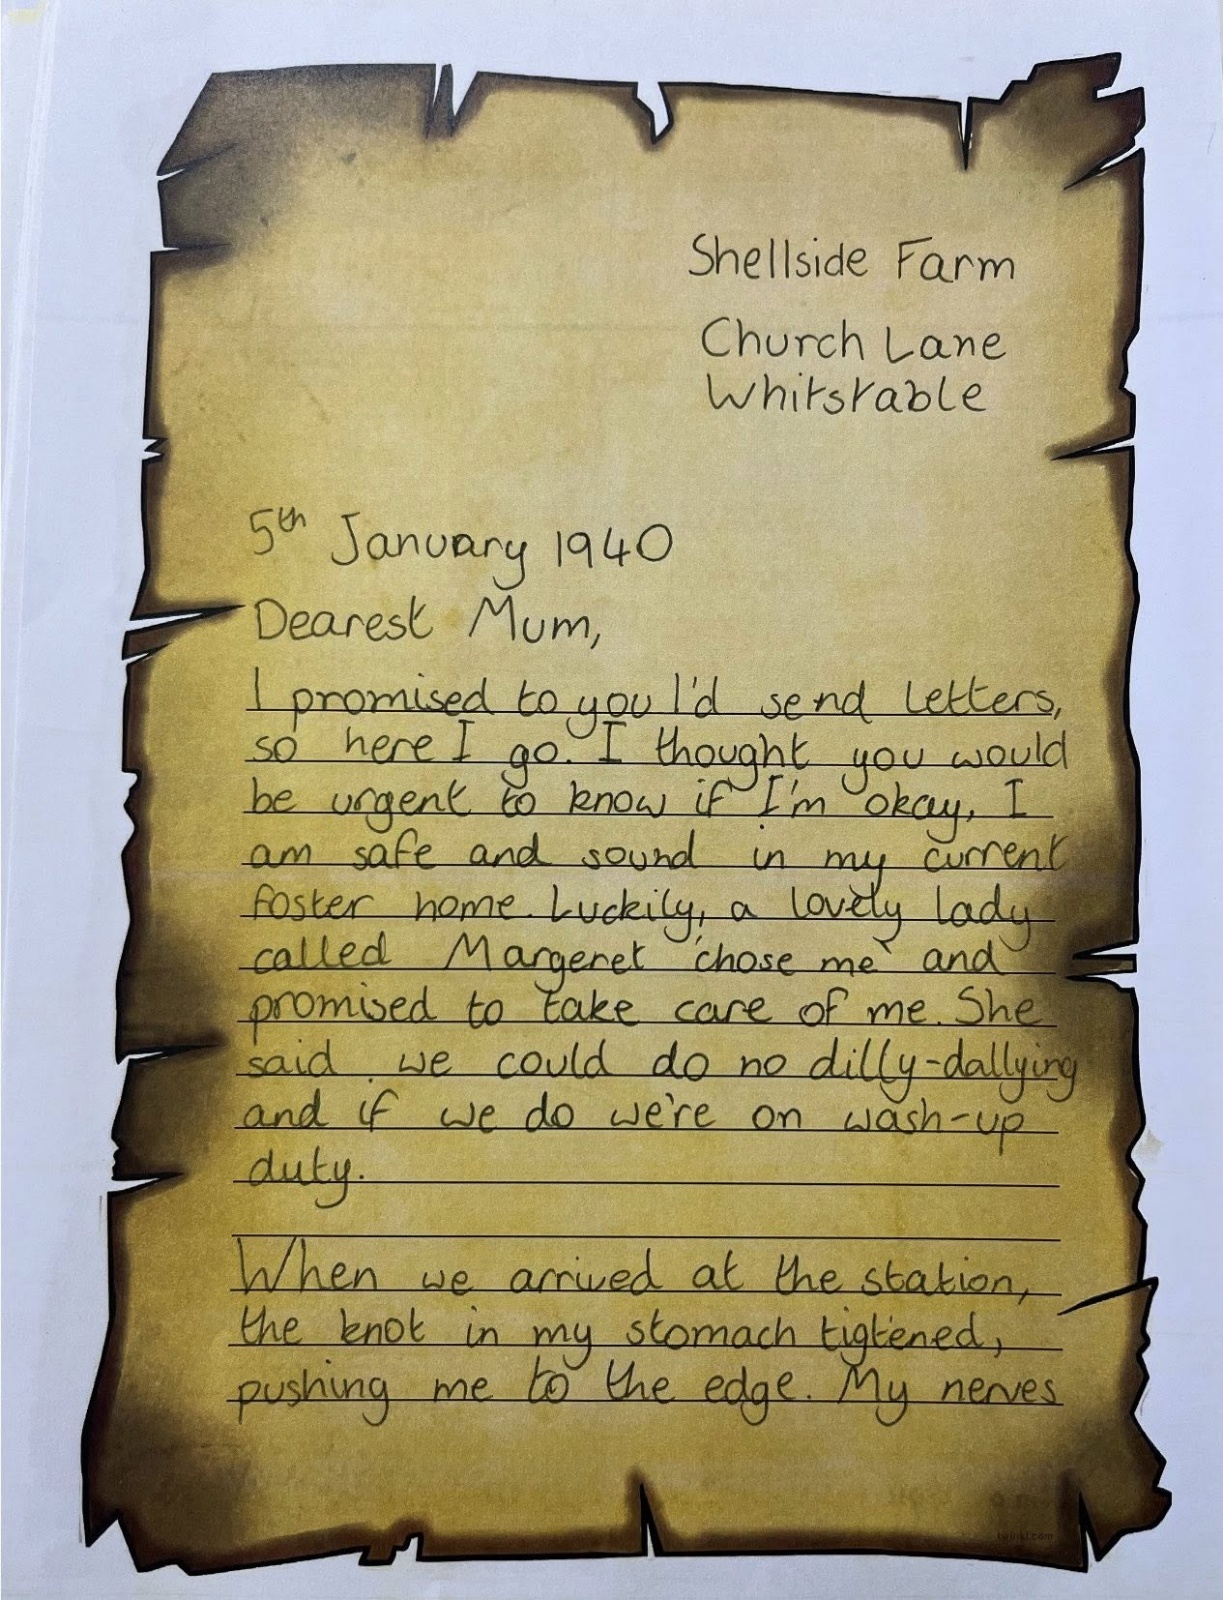 Shellside Farm
Church Lane
Whitstable
5th January 1940
Dearest Mum,
I promised to you I'd send letters,
so here I go. I thought you would
be urgent to know if I'm okay, I
am safe and sound in my current
foster home. Luckily, a lovely lady
called Margeret 'chose me' and
promised to take care of me. She
said we could do no dilly-dallying
and if we do we're on wash-up
duty.
When we arrived at the station,
the knot in my stomach tigtened,
pushing me to the edge. My nerves